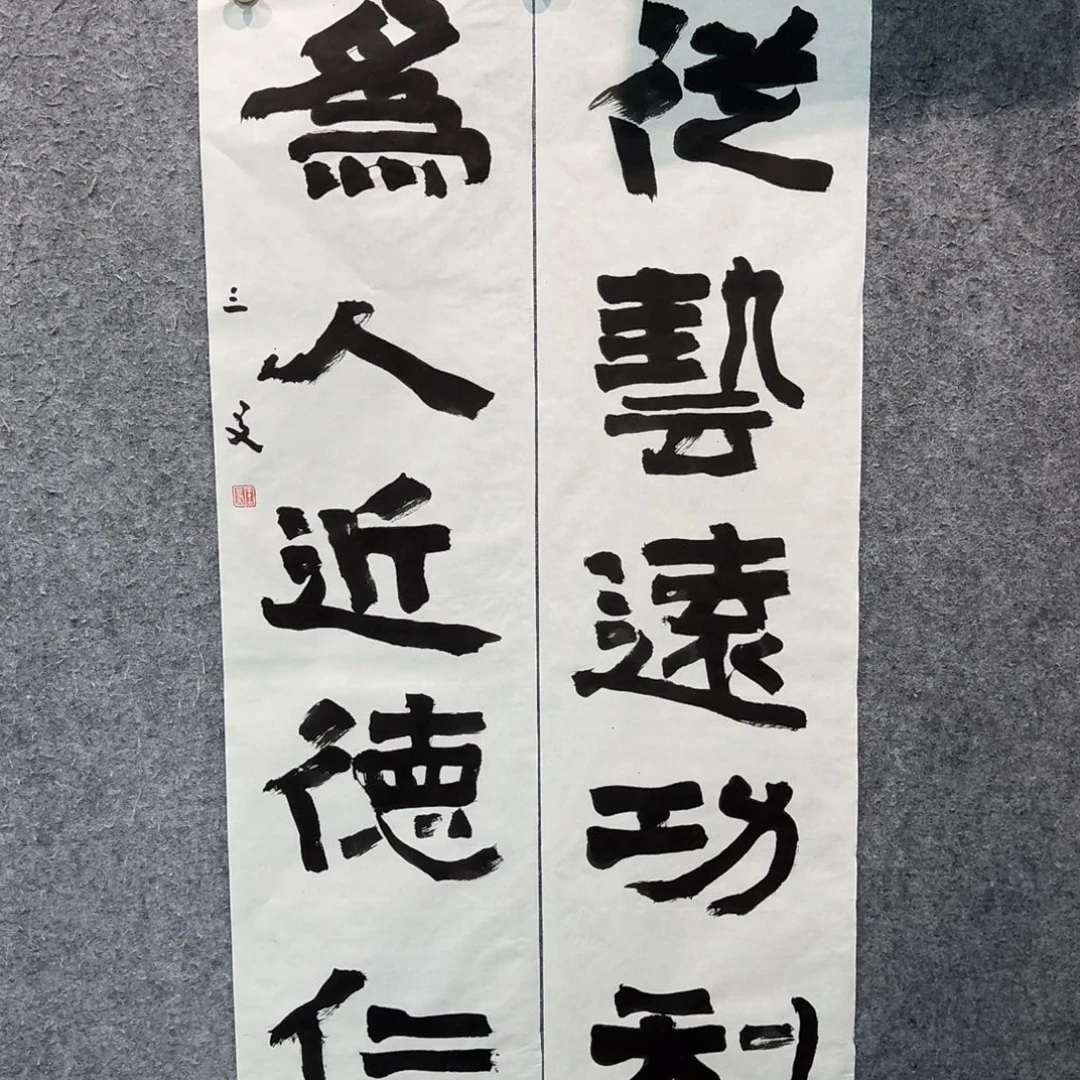 從藝遠功利
為人近德仁
三